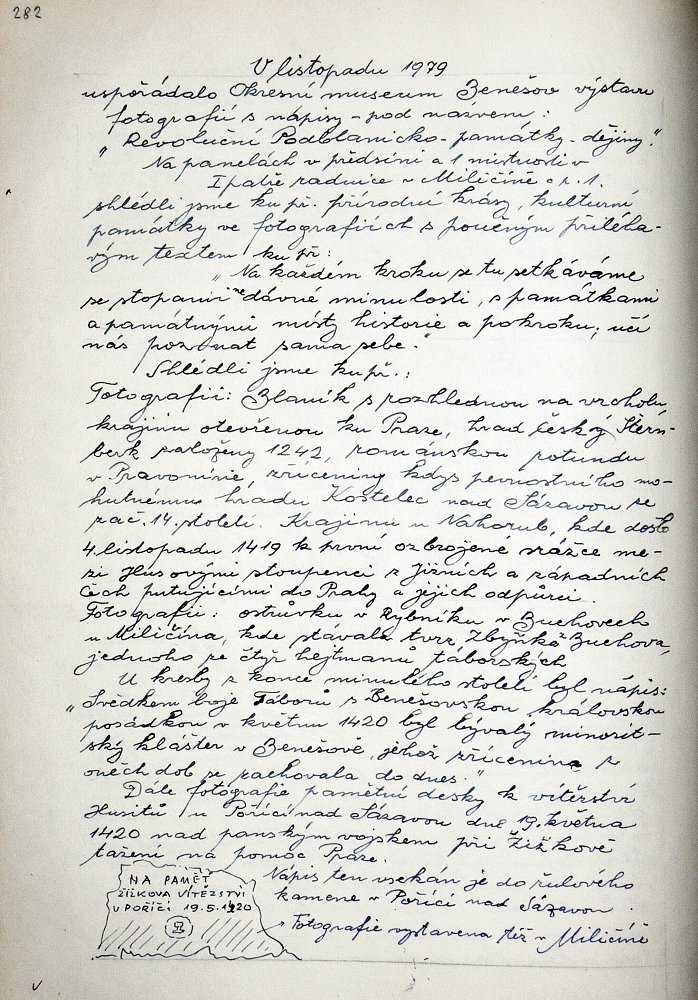 282
V listopadu 1979
uspořádalo Okresní museum Benešov výstavu
fotografií s nápisy - pod názvem:
„Revoluční Podblanicko - památky - dějiny."
Na panelách v předsíni a 1 místnosti v
I patře radnice v Miličíně čp. 1.
shlédli jsme ku př. přírodní krásy, kulturní
památky ve fotografiích s poučným přiléha-
vým textem ku př:
„Na každém kroku se tu setkáváme
se stopami dávné minulosti, s památkami
a památnými místy historie a pokroku, učí
nás poznat sama sebe."
Shlédli jsme ku př.:
Fotografii: Blaník s rozhlednou na vrcholu,
krajinu otevřenou ku Praze, hrad Český Štern-
berk založený 1242, románskou rotundu
v Pravoníně, zříceniny kdys pevnostního mo-
hutného hradu Kostelec nad Sázavou ze
zač. 14. století. Krajinu u Nahorub, kde došlo
4. listopadu 1419 k první ozbrojené srážce me-
zi Husovými stoupenci z Jižních a západních
Čech putujícími do Prahy a jejich odpůrci.
Fotografii: ostrůvku v Rybníku v Buchovech
u Miličína, kde stávala tvrz Zbyňka z Buchova,
jednoho ze čtyř hejtmanů táborských
U kresby z konce minulého století byl nápis:
„Svědkem boje Táborů s Benešovskou královskou
posádkou v květnu 1420 byl bývalý minorit-
ský klášter v Benešově, jehož zřícenina z
oněch dob se zachovala do dnes."
Dále fotografie pamětní desky k vítězství
Husitů u Poříčí nad Sázavou dne 19. května
1420 nad panským vojskem při Žižkově
tažení na pomoc Praze.
NA PAMĚŤ
ŽIŽKOVA VÍTĚZSTVÍ
U POŘÍČÍ 19.5.1420
Nápis ten vsekán je do žulového
kamene v Poříčí nad Sázavou.
Fotografie vystavena též v Miličíně
v